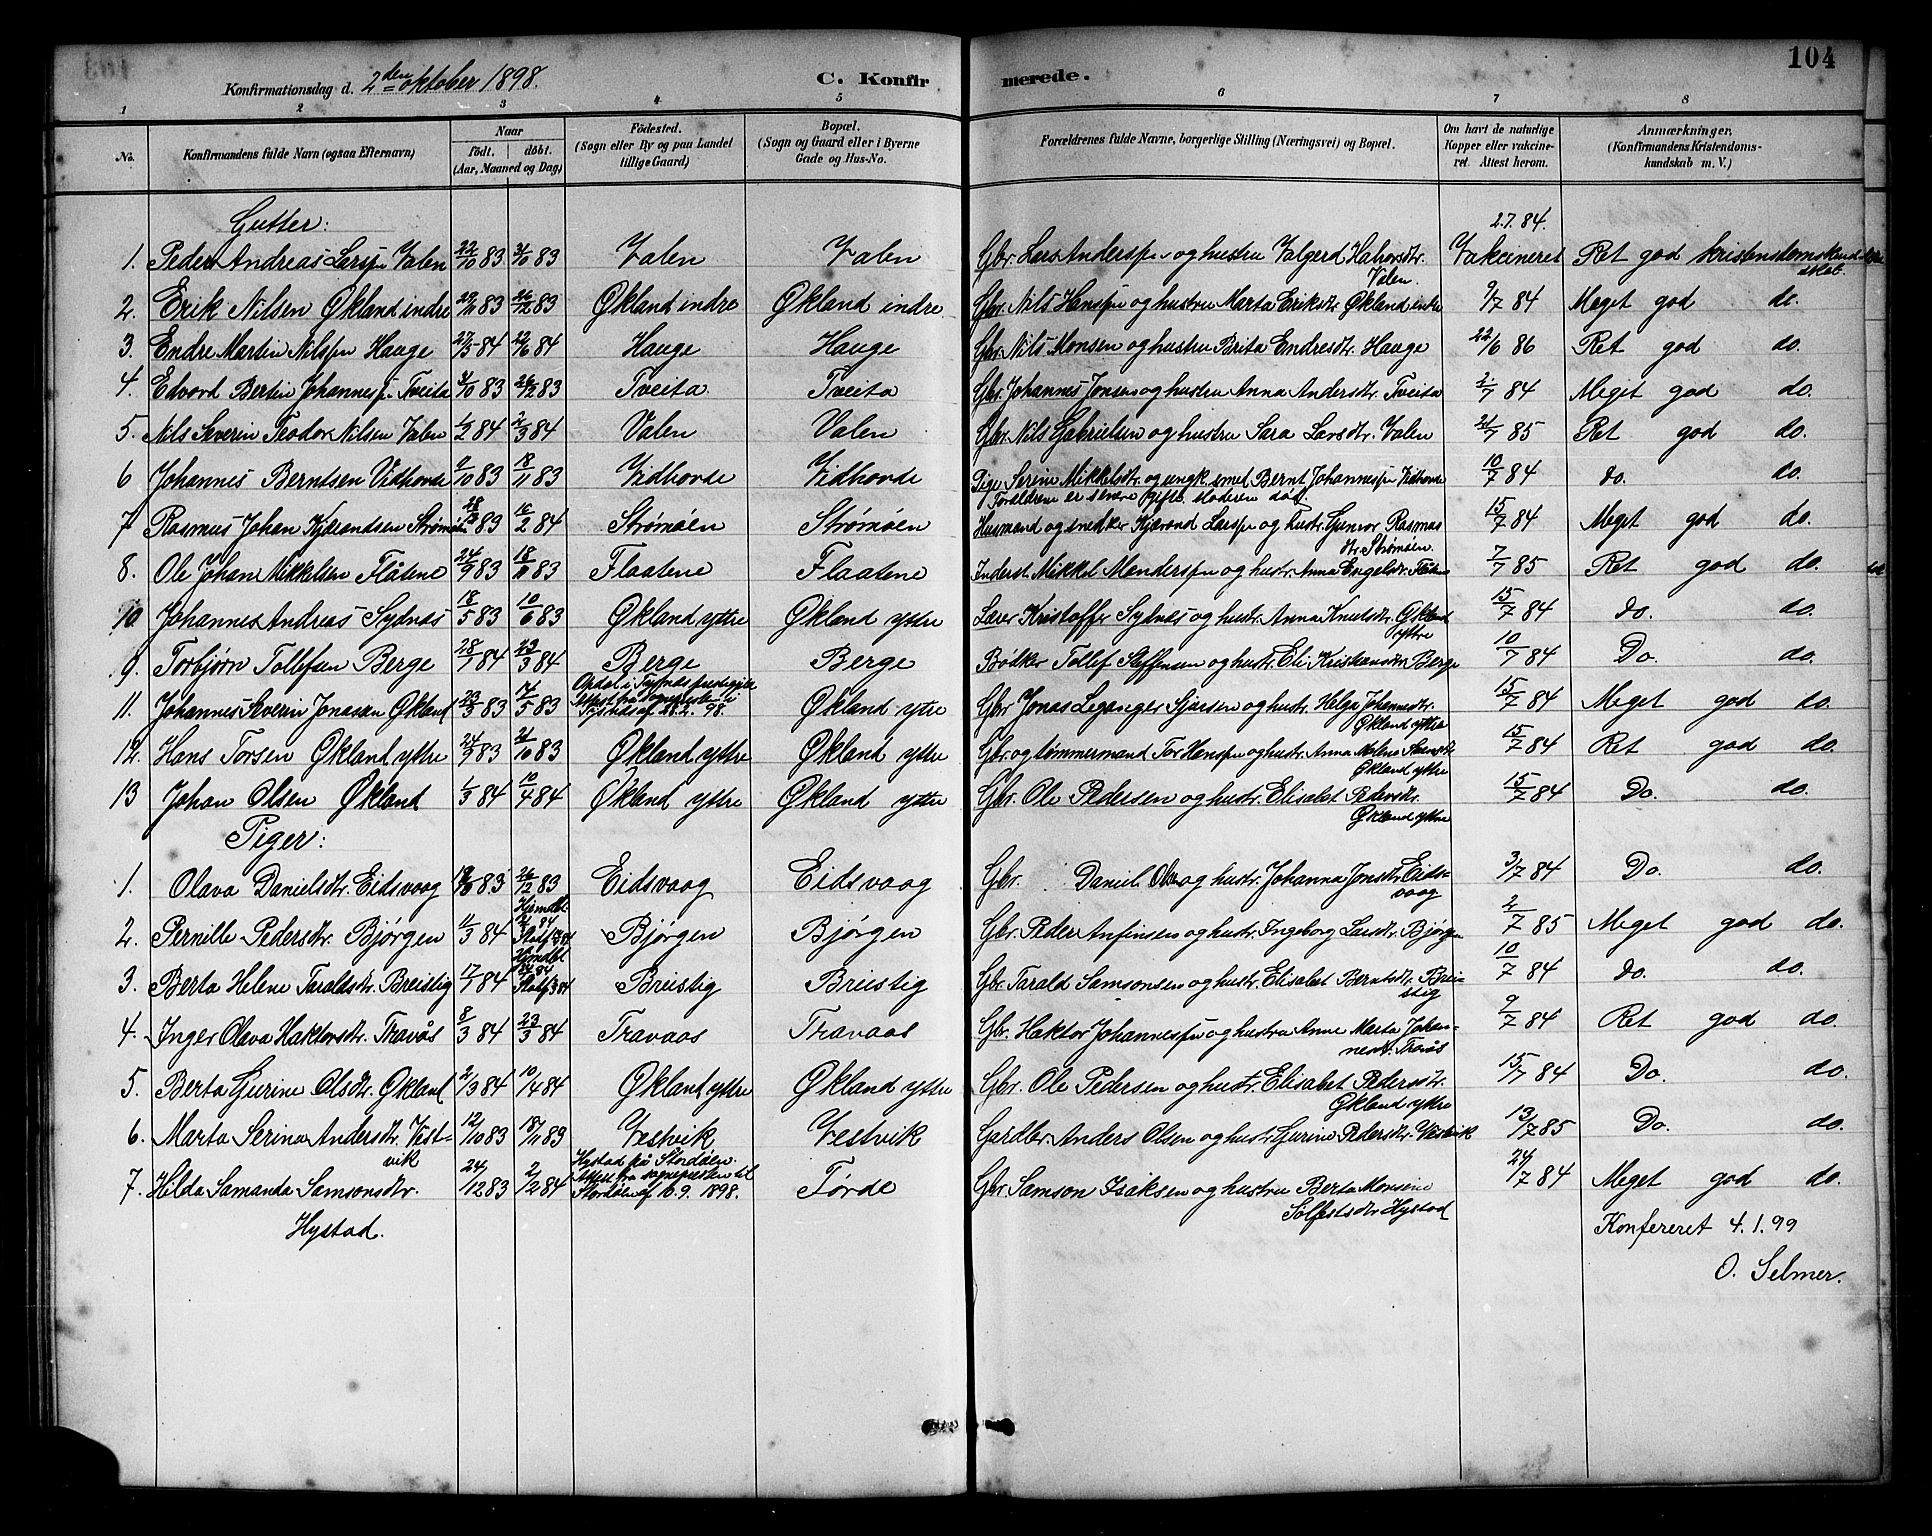 104
Konfirmationsdag d. 2den oktober 1898.
C. Konfirmerede.
1 2 3 4 5 6 7 8
No.
Konfirmandens fulde Navn (ogsaa Efternavn)
Naar
födt. döbt.
(Aar, Maaned og Dag)
Födested.
(Sogn eller By og paa Landet
tillige Gaard)
Bopæl.
(Sogn og Gaard eller i Byerne
Gade og Hus-No.
Forældrenes fulde Navne, borgerlige Stilling (Næringsvei) og Bopæl.
Om havt de naturlige
Kopper eller vakcine-
ret. Attest herom.
Anmærkninger.
(Konfirmandens Kristendoms-
kundskab m. V.)
Gutter:
2.7.84.
1. Peder Andreas Larss. Valen 22/10 83 31/10 83 Valen Valen Gbr. Lars Anderss. og hustru Valgerd Halvorsdtr. Valen. Vakcineret Ret god kristendomskundskab
2. Erik Nilsen Økland indre 29/11 83 26/12 83 Økland indre Økland indre. Gbr. Nils Hanss. og hustru Marta Eriksdtr. Økland indre 9/7 84 Meget god do.
3. Endre Martin Nilss. Hauge 27/5 84 22/6 84 Hauge Hauge Gbr. Nils Monsen og hustru Brita Endresdtr. Hauge 22/6 86 Ret god do.
4. Edvard Bertin Johanness. Tveita 3/10 83 26/12 83 Tveita Tveita Gbr. Johannes Jonsen og hustru Anna Andersdtr. Tveita 2/7 84 Meget god do.
5. Nils Severin Teodor Nilsen Valen 1/2 84 2/3 84 Valen Valen Gbr. Nils Gabrielsen og hustru Sara Larsdtr. Valen 21/7 85 Ret god do.
6 Johannes Berntsen Vidhovde 9/10 83 18/11 83 Vidhovde Vidhovde Pige Serine Mikkelsdtr. og ungk. smed Bernt Johanness. Vidhovde 10/7 84 do. do.
Foreldrene er senere gifte, moderen død.
7 Rasmus Johan Kjærandsen Strømøen 28/12 83 16/2 84 Strømøen Strømøen Husmand og snedker Kjærand Larss. og hustr. Gunvor Rasmusdtr. Strømøen. 15/7 84 Meget god do.
8. Ole Johan Mikkelsen Flåtene 24/9 83 18/11 83 Flaatene Flaatene Inderst Mikkel Monderss. og hustr. Anna Engelsdtr. 7/7 85 Ret god do.
10. Johannes Andreas Sydnæs 18/5 83 10/6 83 Økland yttre Økland yttre Lærer Kristoffer Sydnæs og hustr. Anna Knutsdtr. Økland yttre 15/7 84 do. do.
9. Torbjørn Tollefsen Berge 28/1 84 23/3 84 Berge Berge Bødker Tollef Steffensen og hustr. Eli Kristiansdtr. Berge 10/7 84 Do. do.
11. Johannes Severin Jonasen Økland 23/3 83 14/5 83 Opdal i Tysnæs prestegjeld
Attest fra sognepresten til
Tysnæs af 28.2.98. Økland ytre Gbr. Jonas Leganger Sjursen og hustr. Helga Johannesdtr. Økland yttre 15/7 84 Meget god do.
12. Hans Torsen Økland yttre 24/9 83 21/10 83 Økland yttre Økland yttre Gbr. og tømmermand Tor Hanss. og hustr. Anna Malena Økland yttre 15/7 84 Ret god do.
13 Johan Olsen Økland 1/3 84 10/4 84 Økland yttre Økland yttre Gbr. Ole Pedersen og hustr. Elisabet Pedersdtr. Økland yttre 15/7 84 Do. do.
Piger:
1. Olava Danielsdtr. Eidsvaag 83 26/12 83 Eidsvaag Eidsvaag Gbr. Daniel Olsen og hustr. Johanna Jonsdtr. Eidsvaag 3/7 84 Do. do.
2. Pernille Pedersdtr. Bjørgen 11/3 84 Hjemdøbt Bjørgen Bjørgen Gbr. Peder Anfinsen og hustr. Ingeborg Larsdtr. Bjørgen 2/7 85 Meget god do.
3. Berta Helene Taraldsdtr. Breistig 17/1 84 Hjemdøbt Breistig Breistig Gbr. Tarald Samsonsen og hustr. Elisabet Berntsdtr. Breistig 10/7 84 do. do.
4. Inger Olava Haktorsdtr. Travås 8/3 84 23/3 84 Travaas Travaas Gbr. Haktor Johanness. og hustru Anne Marta Johannesdtr. Travås 9/7 84 Ret god do.
5. Berta Gurine Olsdtr. Økland 2/3 84 10/4 84 Økland yttre Økland yttre Gbr. Ole Pedersen og hustr. Elisabet Pedersdtr. Økland yttre 15/7 84 Do. do.
6. Marta Serina Andersdtr. Vestvik 12/10 83 18/11 83 Vestvik Vestvik Gardbr. Anders Olsen og hustr. Gurine Pedersdtr. Vestvik 13/7 85 Do. do.
7. Hilda Samanda Samsonsdtr. Hystad. 24/12 83 2/2 84 Hystad på Stordøen.
Attest fra sognepresten til
Stordøen af 16.9.1898. Førde Gbr. Samson Isaksen og hustru Berta Monsine Sølfestsdtr. Hystad 24/7 84 Meget god do.
Konfereret 4.1.99
O. Selmer.